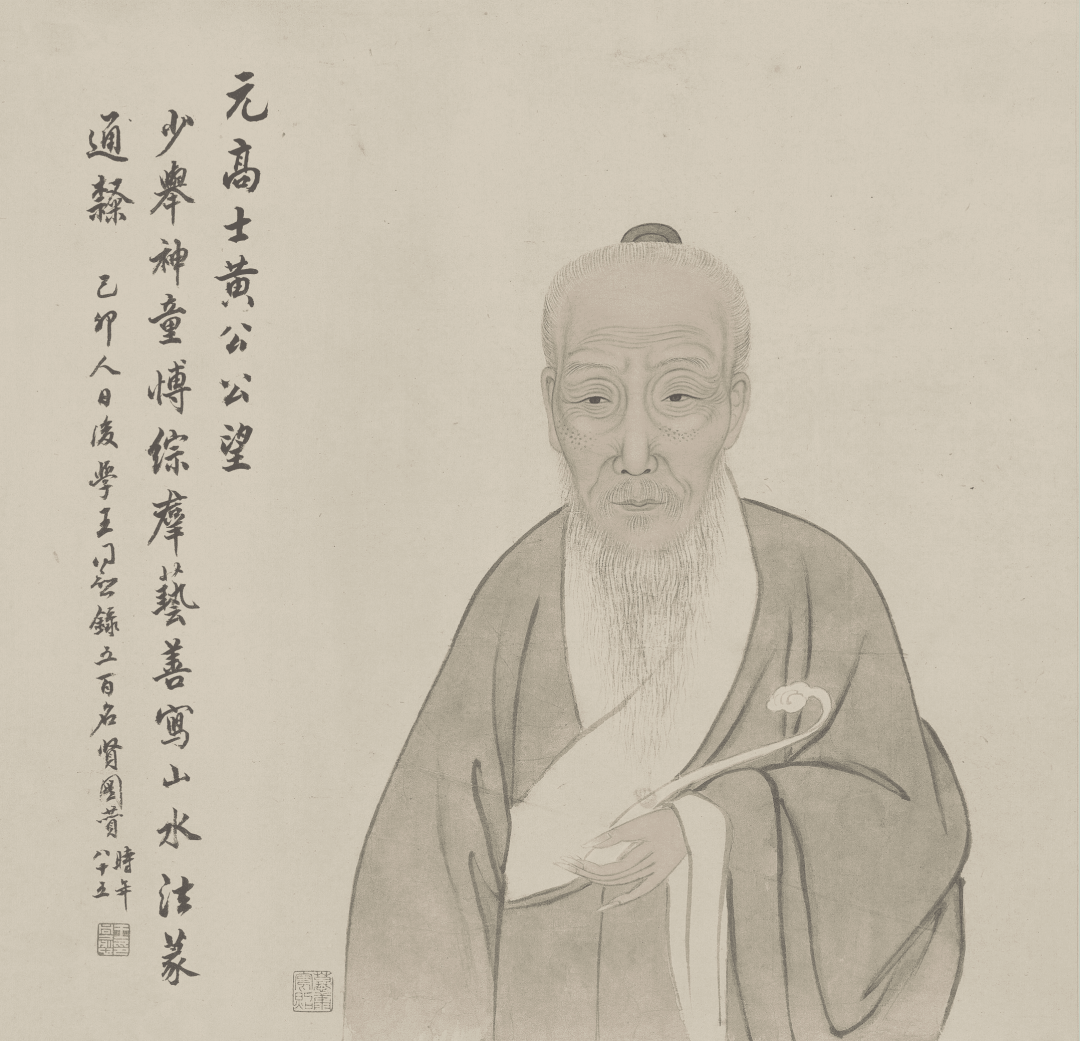 元高士黃公公望
少舉神童愽綜羣藝善寫山水法篆
通隸 己卯人日後學王同愈錄五百名賢圖贊 時年八十五